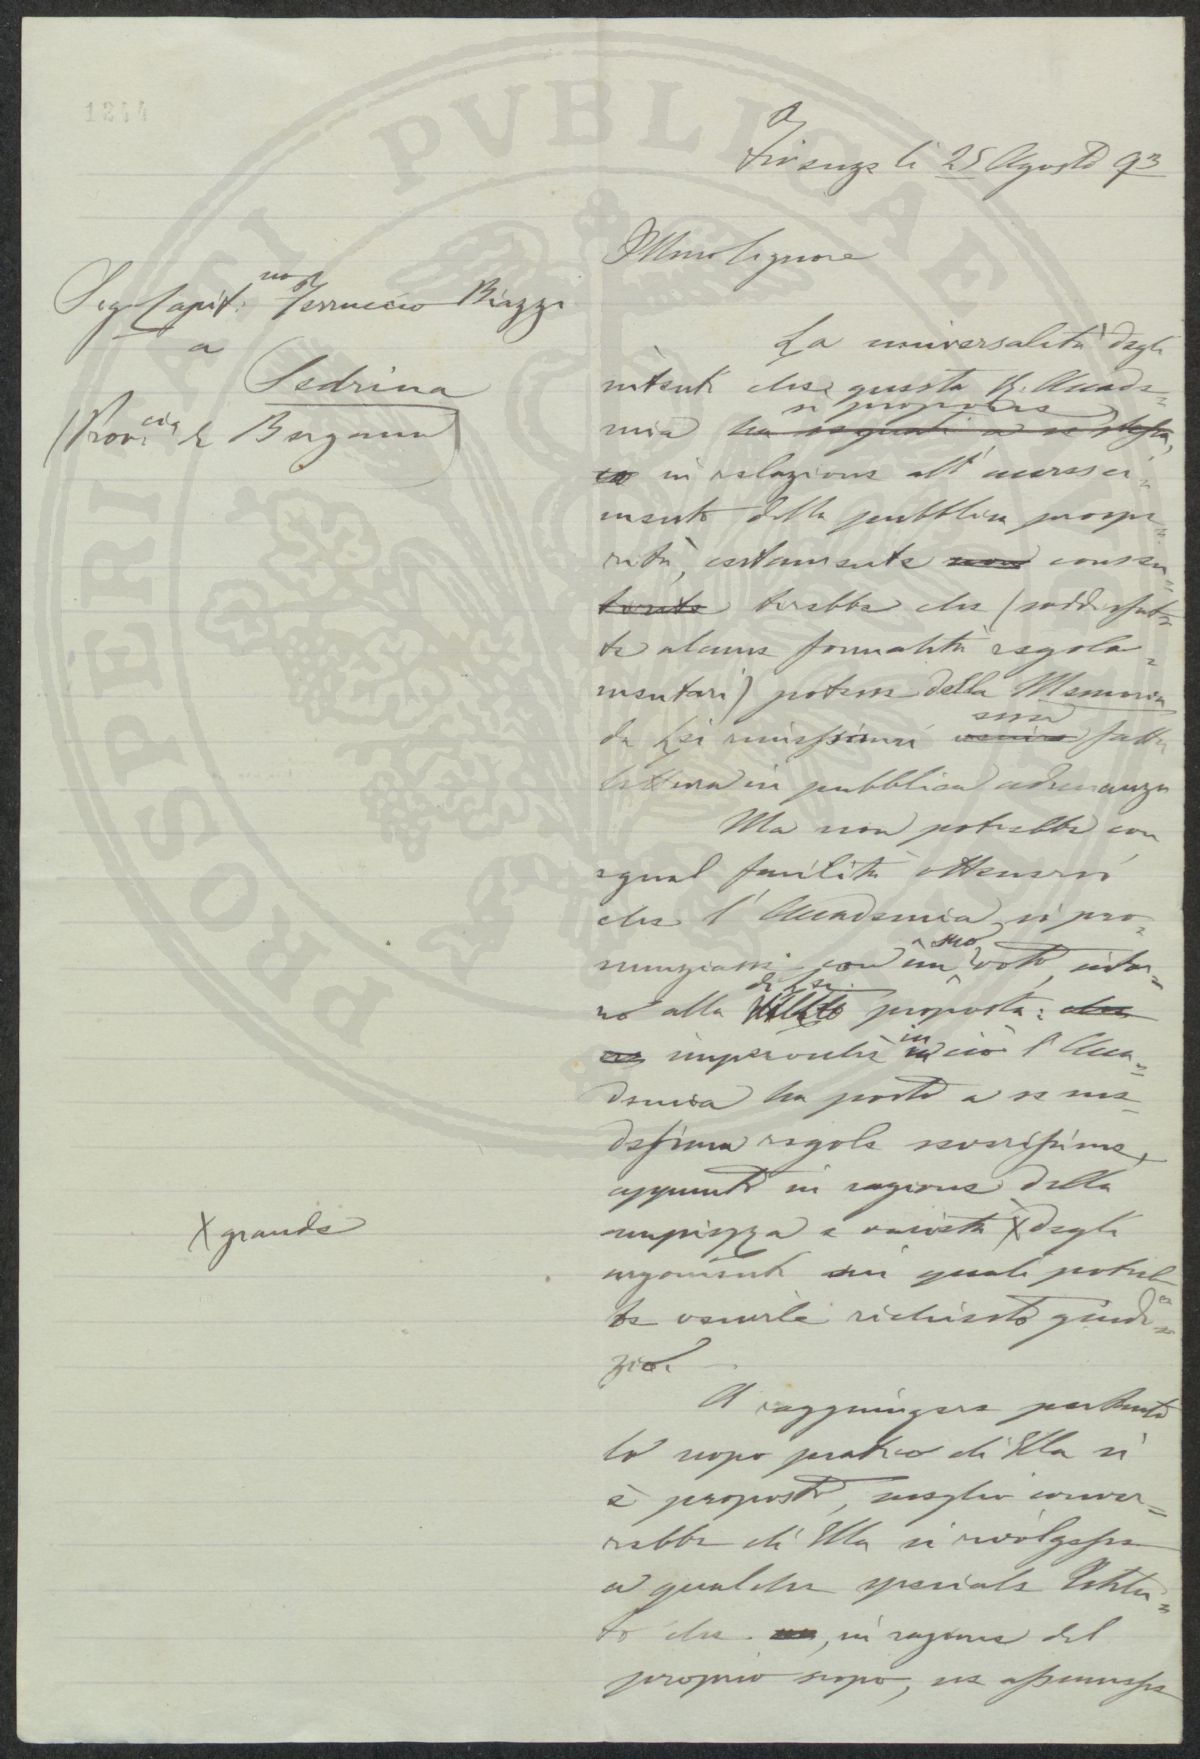 Firenze li 25 Agosto 93
Sig. Capit. Ferruccio Biazzi
a
Sedrina
(Prov.cia di Bergamo)
Illmo Signore
La universalità degli
intenti che questa R. Accade=
si propone
mia ha
in relazione all'accresci=
mento della pubblica prospe=
rità, certamente non consen=
tirebbe che (soddisfat=
te alcune formalità regola=
mentari) potesse della Memoria
da Lei rimessami esser fatta
lettura in pubblica adunanza
Ma non potrebbe con
egual facilità ottenersi
che l'Accademia si pro=
nunziassi con un suo voto intor=
no alla di Lei proposta: che
imperocché in ciò l'Acca=
demia ha posto a se me=
desima regole severissime,
appunto in ragione della
ampiezza e varietà X degli
X grande
argomenti sui quali potreb=
be venirle richiesto giudi=
zio.
A raggiungere pertanto
lo scopo pratico che Ella si
è proposto, meglio conver=
rebbe che Ella si rivolgesse
a qualche speciale Istitu=
to che, in ragione del
proprio scopo, ne assumesse
PROSPERITATI PVBLICAE